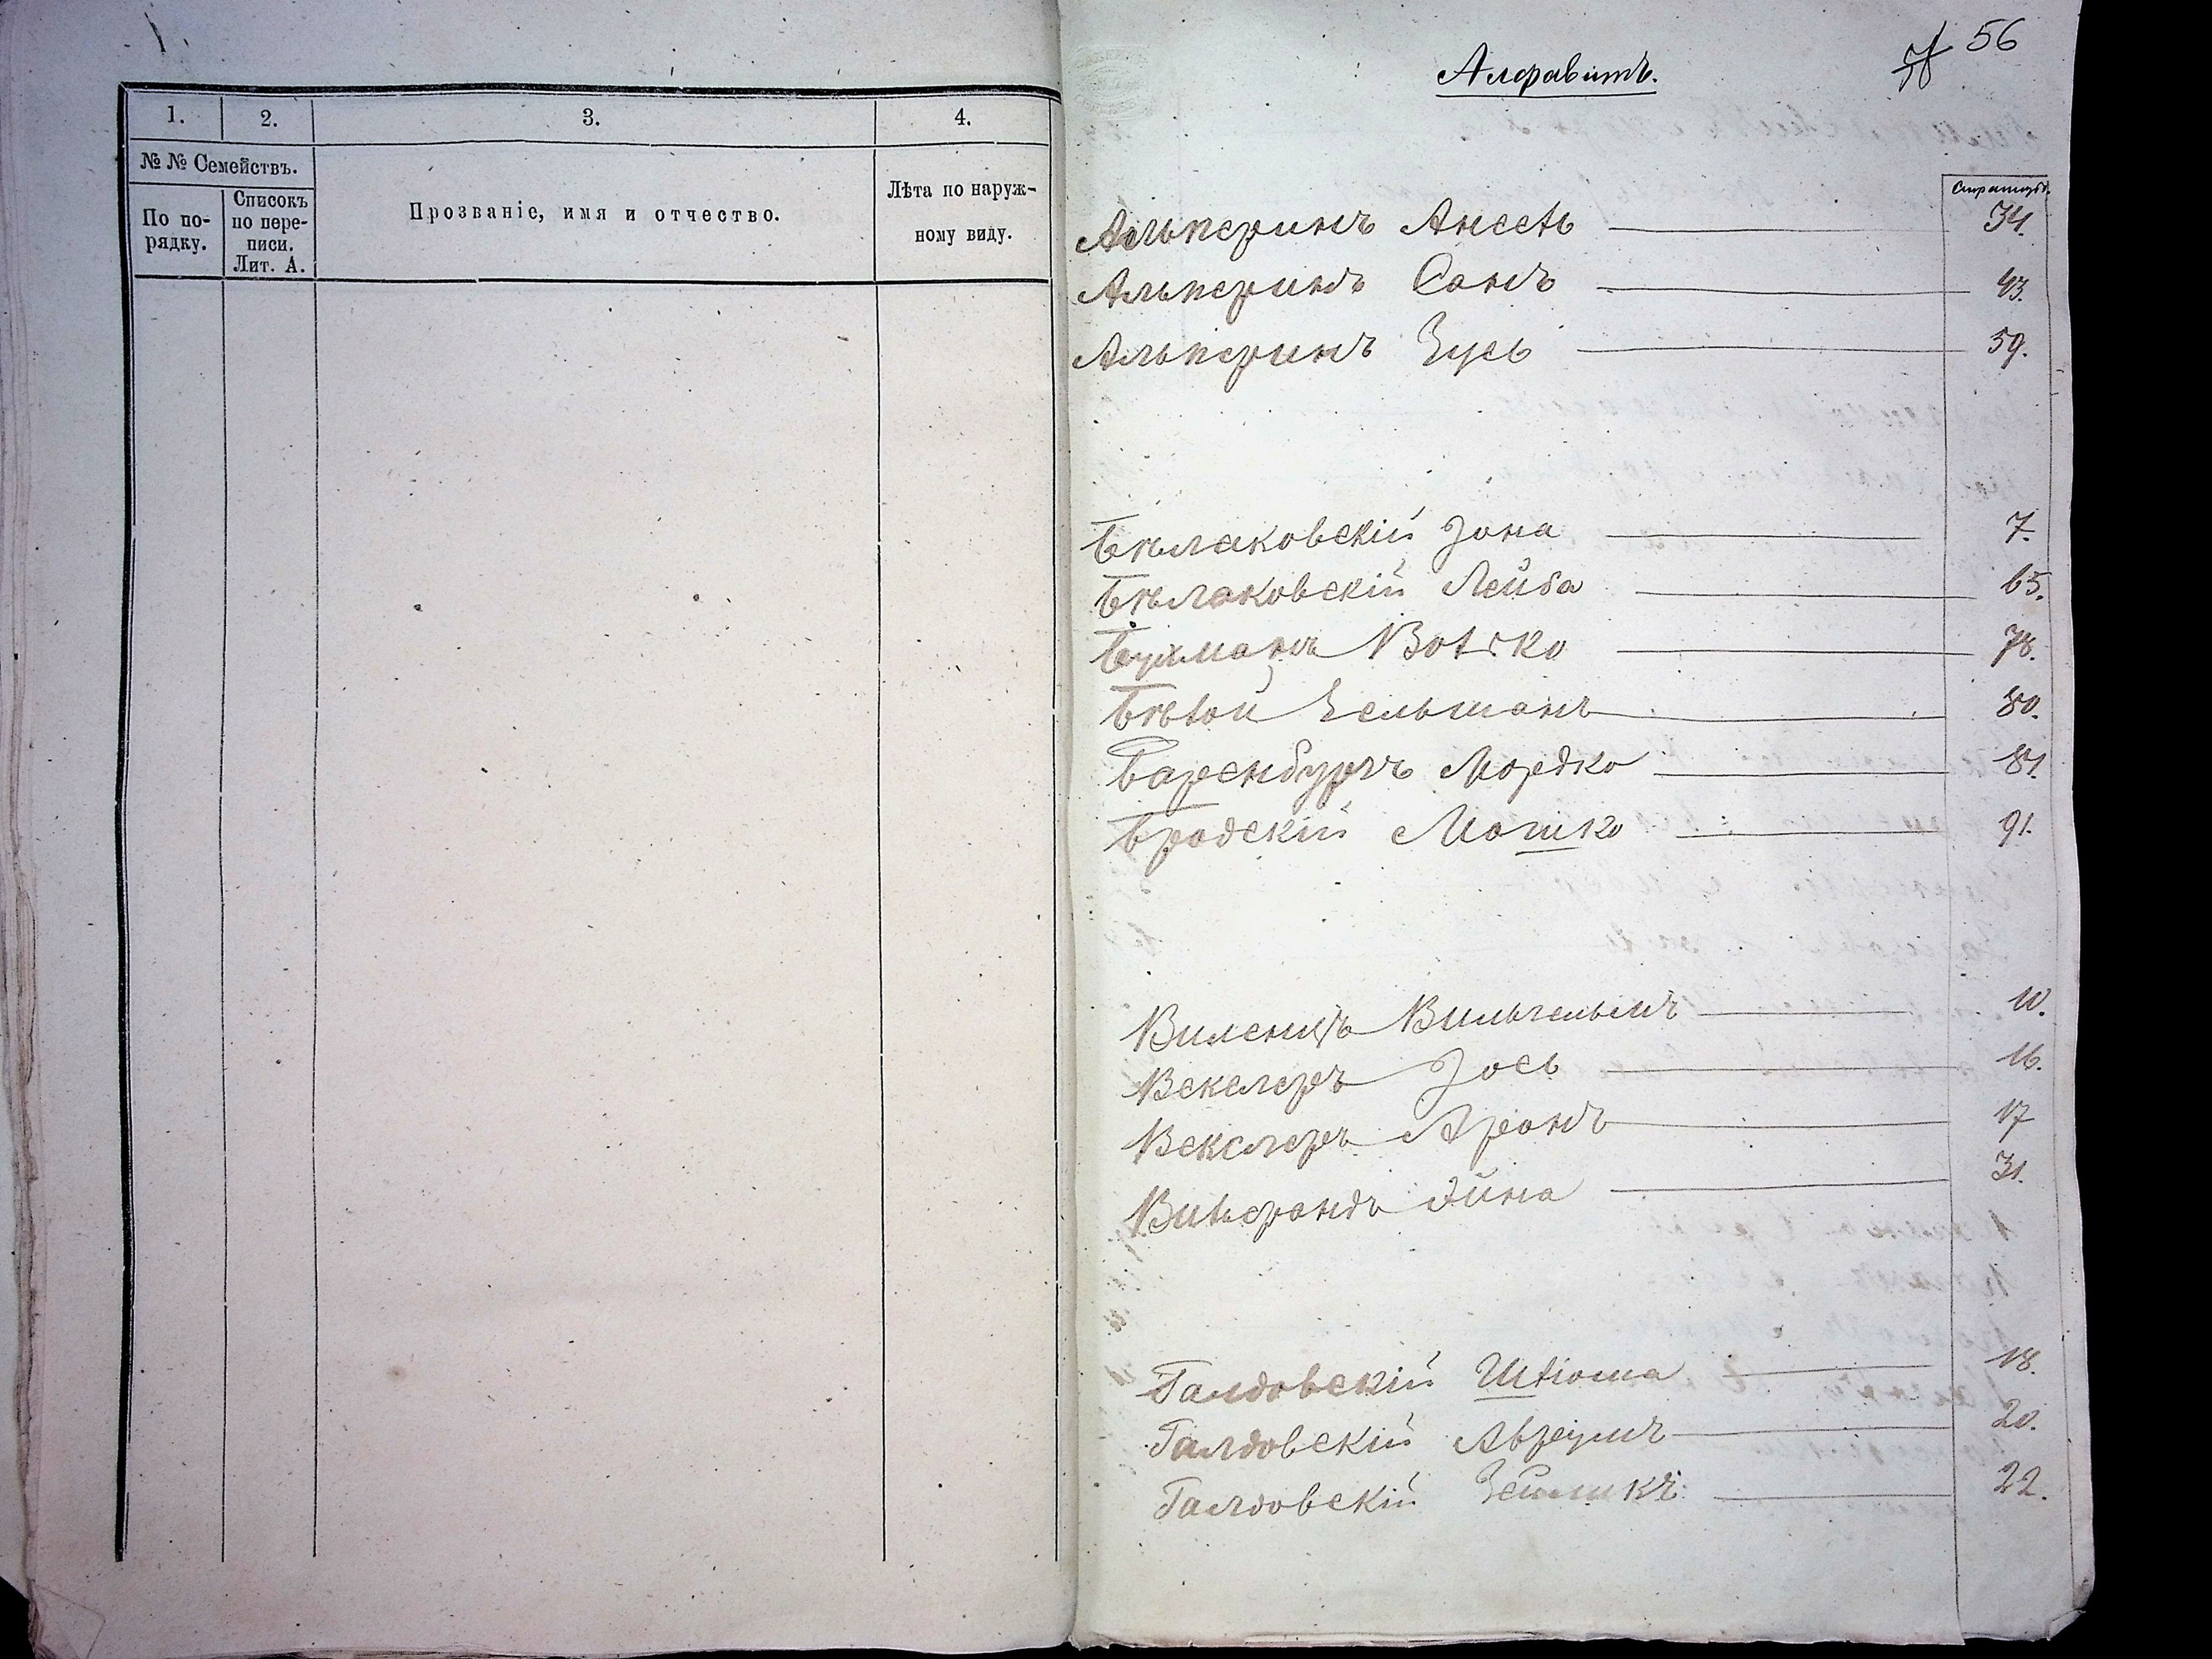 1.
2.
3.
4.
№ № Семействъ.
По по-
рядку.
Списокъ
по пере-
писи.
Лит. А.
Прозваніе, имя и отчество.
Лѣта по наруж-
ному виду.
56
Алфавитъ.
Страницы.
Альперинъ 34.
Альперинъ 43.
Альперинъ Зусь 59.
Бѣлаковскій Іона 7.
Бѣлаковскій Лейба 65.
78.
80.
Баренбургъ Мордко 81.
Бродскій Мошко 91.
Виленецъ Вильгельмъ 10.
Векслеръ Іось 16.
Векслеръ Аронъ 17
31.
Галдовскій Шліома 18.
Галдовскій Авреумъ 20.
Галдовскій 22.